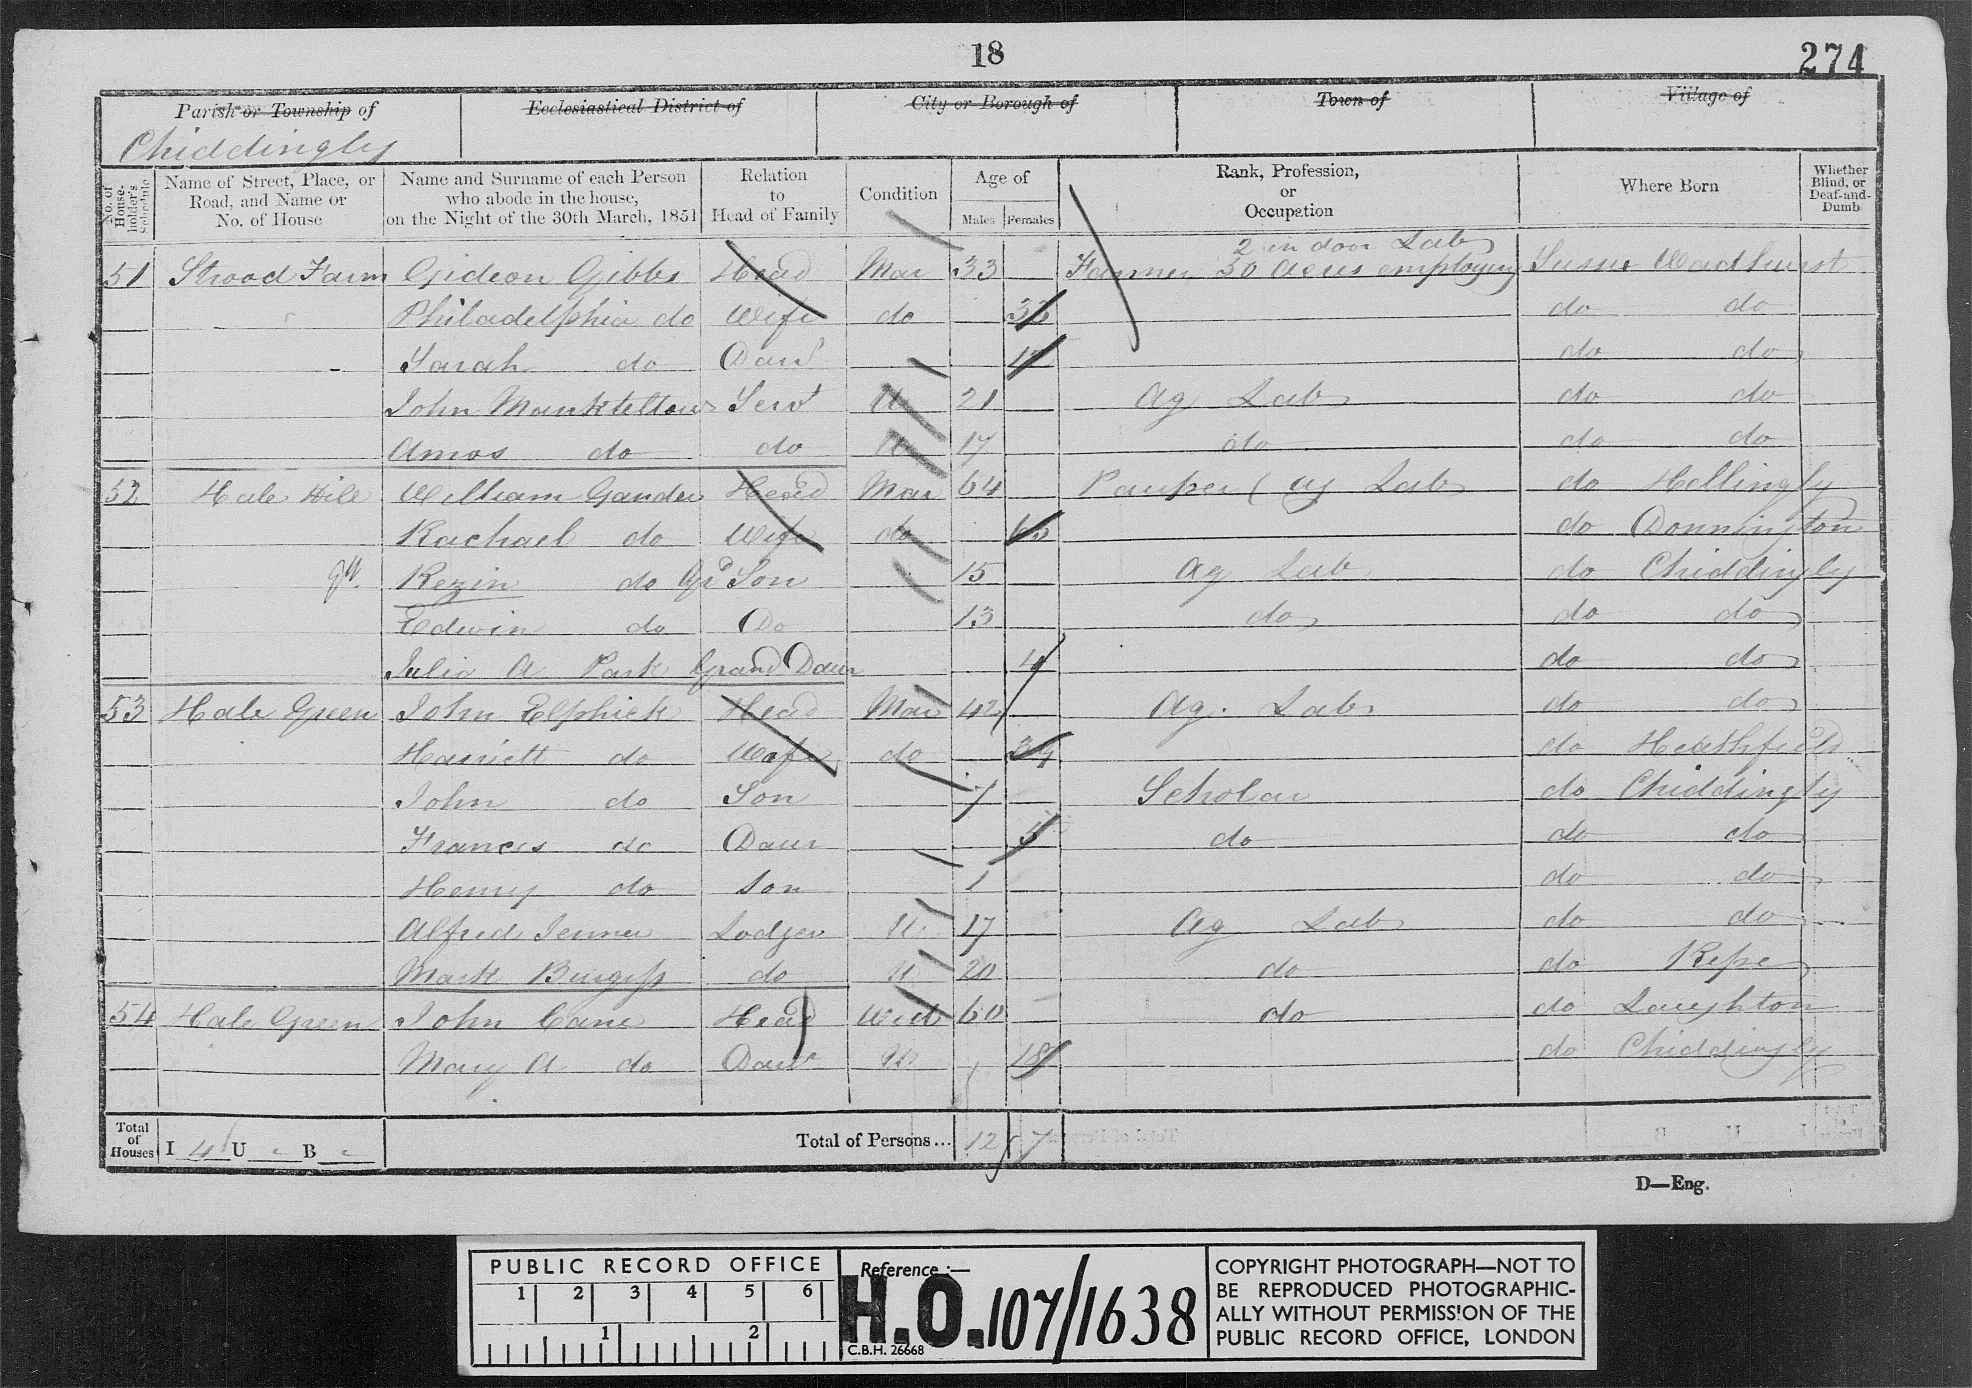 18
274
Parish or Township of
Ecclesiastical District of
City or Borough of
Town of
Village of
Chiddingly
No. of House-holder's Schedule
Name of Street, Place, or Road, and Name or No. of House
Name and Surname of each Person who abode in the house, on the Night of the 30th March, 1851
Relation to Head of Family
Condition
Age of
Males
Females
Rank, Profession, or Occupation
Where Born
Whether Blind, or Deaf-and-Dumb
2 in door Lab
51 Strood Farm Gideon Gibbs Head Mar 33 Farmer 50 acres employing Sussex Wadhurst
Philadelphia do Wife do 33 do do
Sarah do Daur do do
John Manktellow Servt U 21 Ag Lab do do
Amos do do U 17 do do do
52 Hale Hill William Gander Head Mar 64 Pauper ( Ag Lab do Hellingly
Rachael do Wife do 65 do Donnington
Kezin do Gd Son 15 Ag Lab do Chiddingly
Edwin do Do 13 do do do
Julia A Park Grand Daur 4 do do
53 Hale Green John Elphick Head Mar 42 Ag. Lab do do
Harriett do Wife do 34 do Heathfield
John do Son 7 Scholar do Chiddingly
Frances do Daur 5 do do do
Henry do Son 1 do do
Alfred Jenner Lodger U 17 Ag Lab do do
Mark Burgess do U 20 do do Ripe
54 Hale Green John Cane Head Wid 60 do do Laughton
Mary A do Daur U 18 do Chiddingly
Total of Houses I 4 U - B -
Total of Persons... 12 7
D—Eng.
PUBLIC RECORD OFFICE
1 2 3 4 5 6
1 2
Reference :—
H.O. 107/1638
C.B.H. 26668
COPYRIGHT PHOTOGRAPH—NOT TO
BE REPRODUCED PHOTOGRAPHIC-
ALLY WITHOUT PERMISSION OF THE
PUBLIC RECORD OFFICE, LONDON